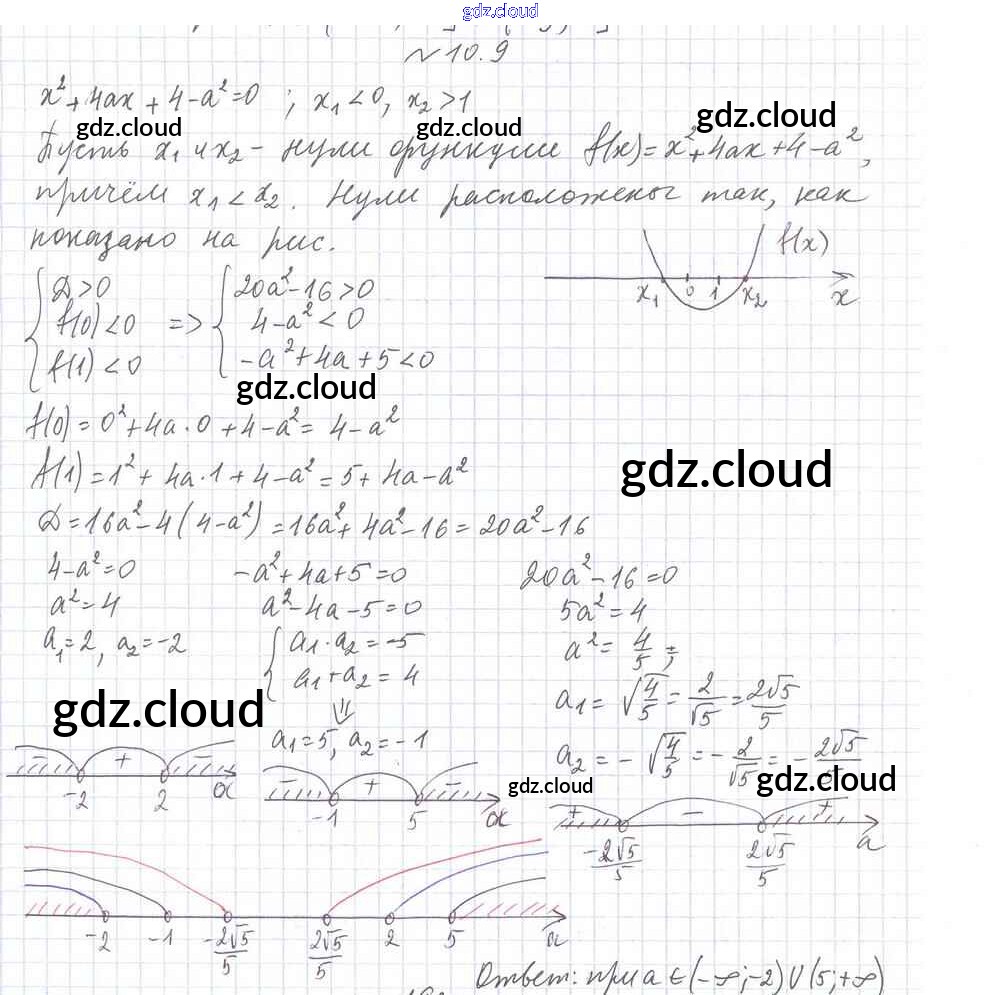 gdz.cloud
№10.9
x²+4ax+4-a²=0 ; x₁<0, x₂>1
gdz.cloud gdz.cloud gdz.cloud
Пусть x₁ и x₂ - нули функции f(x)=x²+4ax+4-a²,
причём x₁<x₂. Нули расположены так, как
показано на рис.
f(x)
x₁ 0 1 x₂ x
{ Д>0 { 20a²-16>0
f(0)<0 => 4-a²<0
f(1)<0 -a²+4a+5<0
gdz.cloud
f(0)=0²+4a·0+4-a²=4-a²
f(1)=1²+4a·1+4-a²=5+4a-a²
gdz.cloud
Д=16a²-4(4-a²)=16a²+4a²-16=20a²-16
4-a²=0 -a²+4a+5=0 20a²-16=0
a²=4 a²-4a-5=0 5a²=4
a₁=2, a₂=-2 { a₁·a₂=-5 a²=4/5;
a₁+a₂=4
a₁=√4/5=2/√5=2√5/5
gdz.cloud
⇓
a₁=5, a₂=-1
a₂=-√4/5=-2/√5=-2√5/5
gdz.cloud gdz.cloud
- + -
-2 2 a
- + -
-1 5 a
+ - +
-2√5/5 2√5/5 a
-2 -1 -2√5/5 2√5/5 2 5 a
Ответ: при a∈(-∞;-2)∪(5;+∞)